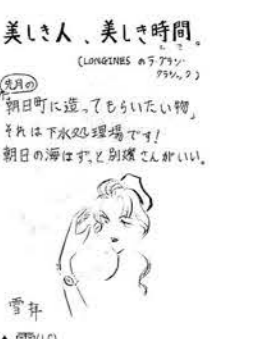 美しき人、美しき時間。
とき
(LONGINES の ラ・グラン・
クラシック)
先月の
「朝日町に造ってもらいたい物」
それは下水処理場です!
朝日の海はずっと別嬪さんがいい。
雪